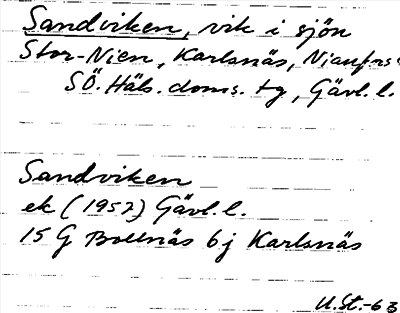 Sandviken, vik i sjön
Stor-Nien, Karlsnäs, Nianfors
SÖ. Häls. doms. tg, Gävl. l.
Sandviken
ek (1957) Gävl. l.
15 G Bollnäs 6j Karlsnäs
U.St.-63